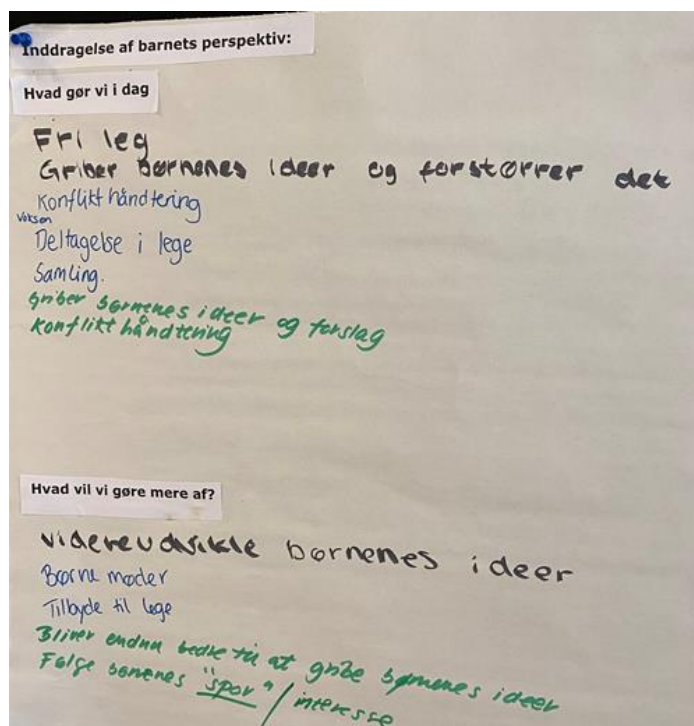 Inddragelse af barnets perspektiv:
Hvad gør vi i dag
Fri leg
Griber børnenes ideer og forstørrer det
Konflikt håndtering
Voksen
Deltagelse i lege
Samling.
Griber børnenes ideer og forslag
Konflikt håndtering
Hvad vil vi gøre mere af?
videreudvikle børnenes ideer
Børne møder
Tilbyde til lege
Bliver endnu bedre til at gribe børnenes ideer
Følge børnenes "spor" / interesse